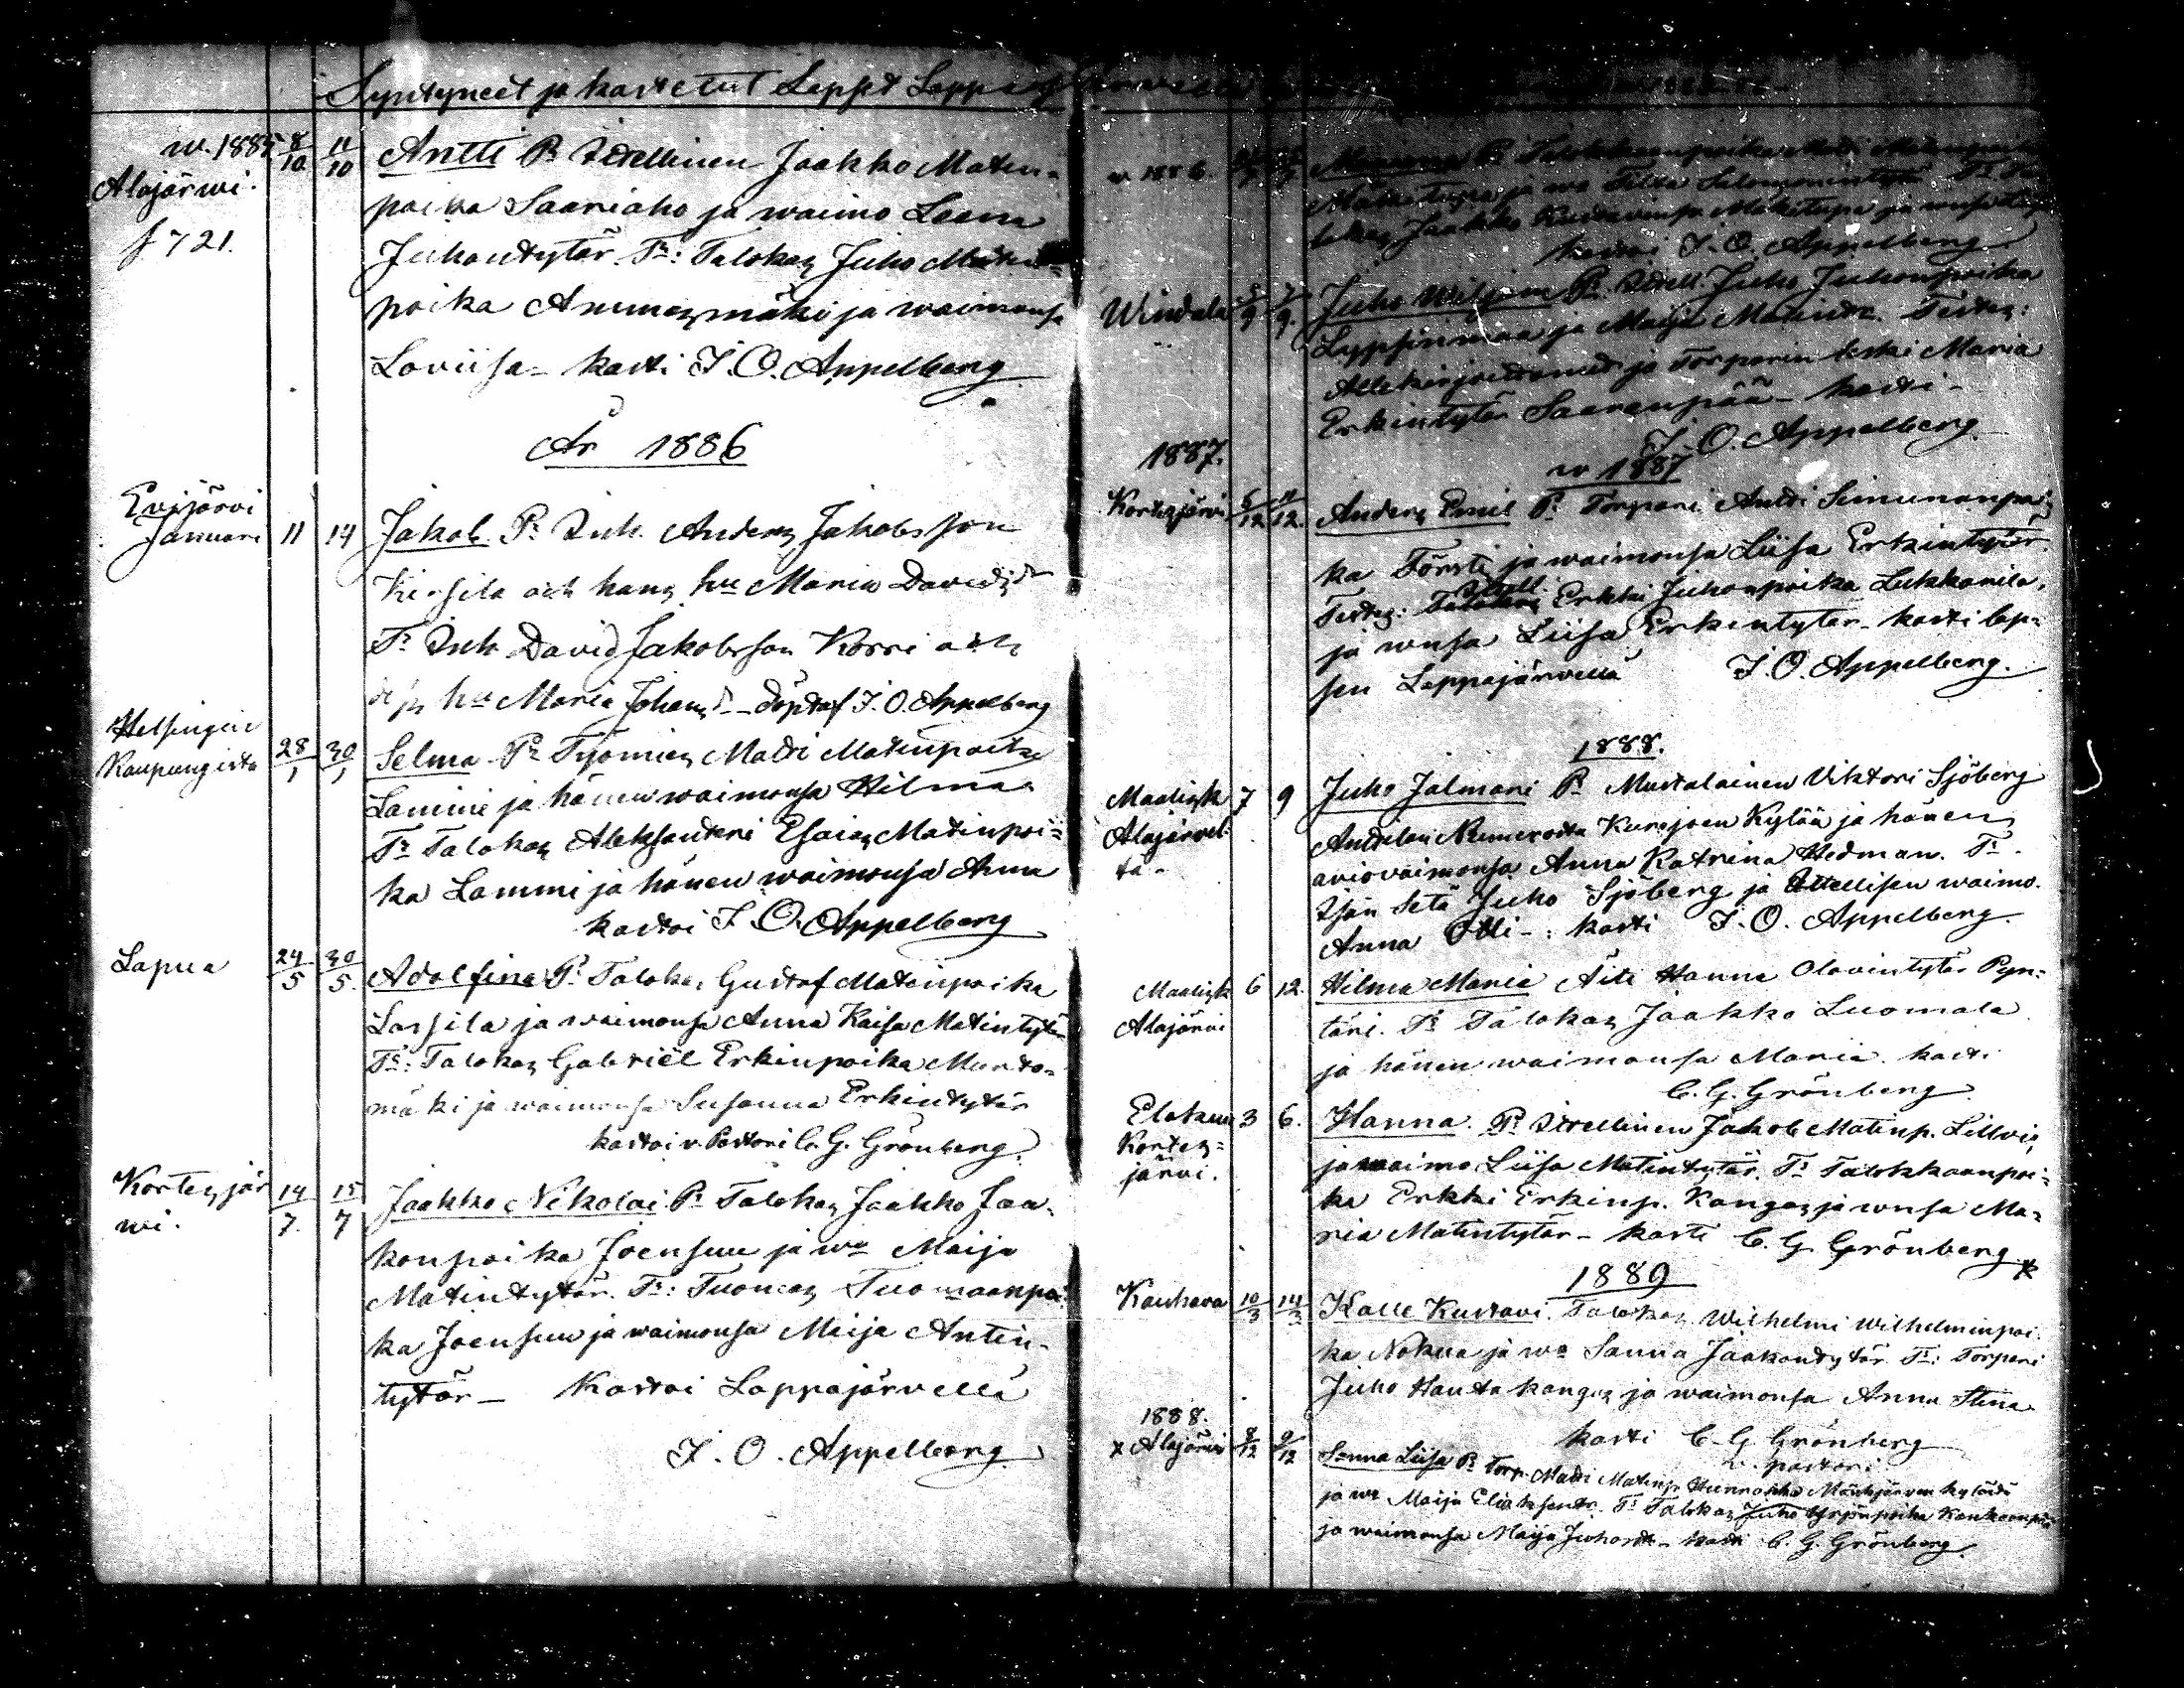 Syntyneet ja kastetut
w. 1885 8/10 11/10 Antti Pr Itellinen Jaakko Matin-
Alajärwi. poika Saariaho ja waimo Leena
f 721. Juhontytär. Tr: Talokas Juho Matin=
poika Ammesmäki ja waimonsa
Loviisa - kasti I. O. Appelberg
År 1886
Evijärvi
Januari 11 14 Jakob. Pr Inh. Anders Jakobsson
Kirsila och hans hu Maria Davidsdr
Tr Inh David Jakobsson Korri och
hu Maria Johansd - döptes af I. O. Appelberg
Helsingin
Kaupungista 28/1 30/1 Selma Pr Työmies Matti Matinpoika
Lammi ja hänen waimonsa Hilma
Tr Talokas Aleksanteri Esaias Matinpoi=
ka Lammi ja hänen waimonsa Anna
kastoi I. O. Appelberg
Lapua 24/5 30/5. Adolfina Pr Talokas Gustaf Matinpoika
Lassila ja waimonsa Anna Kaisa Matintytär
Tr: Talokas Gabriël Erkinpoika Murto-
mäki ja waimonsa Susanna Erkintytär
kastoi v. Pastori C. G. Grönberg.
Kortesjär
wi. 14/7. 15/7 Jaakko Nikolai Pr Talokas Jaakko Jaa-
konpoika Joensuu ja wa Maija
Matintytär. Tr: Tuomas Tuomaanpoi
ka Joensuu ja waimonsa Maija Antin-
tytär - Kastoi Lappajärvellä
I. O. Appelberg
w. 1886. Talokkaanpoika Matti
Mäkitupa ja wa
Jaakko Mäkitupa ja
kastoi I. O. Appelberg
Windala 5/9 7/9. Juho Wiljam Pr. Itell. Juho Juhonpoika
ja Maija Matintr. Testes:
Allekirjoittanut ja Torparin leski Maria
Erkintytär Saarenpää - kasti -
I. O. Appelberg
1887. w 1887
Kortesjärvi 5/12 11/12. Anders Emil Pr. Torpari Antti Simunanpoi
ka Törsti ja waimonsa Liisa Erkintytär.
Testes: Itell. Erkki Juhonpoika Lukkarila,
ja wnsa Liisa Erkintytär - kasti lap=
sen Lappajärvellä I. O. Appelberg.
1888.
Maalisk 7 9 Juho Jalmari Pr Mustalainen Viktori Sjöberg
Alajärvel- Kurejoen Kylää ja hänen
tä - aviovaimonsa Anna Katrina Hedman. Tr.
Isän Setä Juho Sjöberg ja Itellisen waimo.
Anna Olli - : kasti I. O. Appelberg.
Maalisk 6 12. Hilma Maria Äiti Hanna Olavintytär Pyn-
Alajärvi täri. Tr Talokas Jaakko Luomala
ja hänen waimonsa Maria. kasti
C. G. Grönberg.
Elokuu 3 6. Hanna. Pr Itellinen Jakob Matinp. Lillvis,
Kortes=
järvi. ja waimo Liisa Matintytär. Tr Talokkaanpoi=
ka Erkki Erkinp. Kangas ja wnsa Ma=
ria Matintytär - kasti C. G. Grönberg
x
1889
Kauhava 10/3 14/3 Kalle Kustavi. Talokas Wilhelmi Wilhelminpoi.
ka Nokua ja wa Sanna Jaakontytär. Tr: Torpari
Juho Hautakangas ja waimonsa Anna Stina
kasti C. G. Grönberg
v. pastori
1888.
x Alajärvi 8/12 9/12 Sanna Liisa Pr Torp. Matti Matinp. Hunnakko Mänkjärven kylästä
ja wa Maija Eliaksentr. Tr Talokas Juho Yrjönpoika
ja waimonsa Maija Juhontr - kasti C. G. Grönberg.